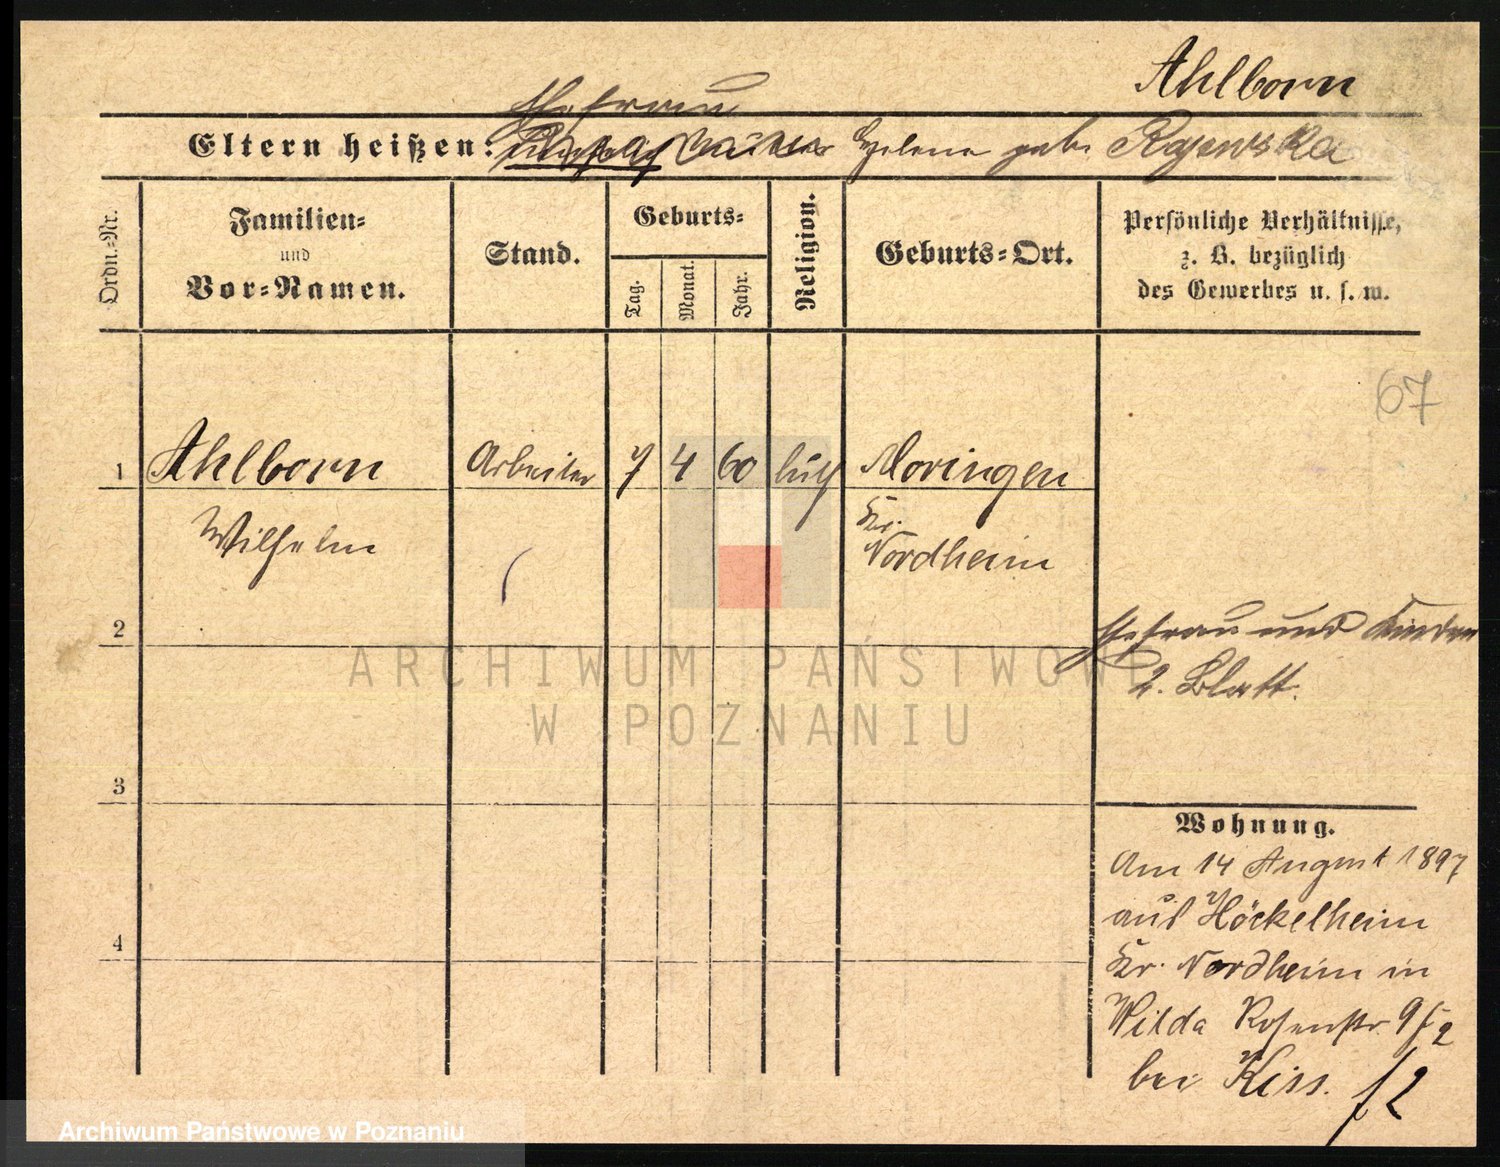 Ahlborn
Ehefrau
Eltern heißen: Helene geb. Rajewska
Ordn.-Nr.
Familien-
und
Vor-Namen.
Stand.
Geburts-
Tag.
Monat.
Jahr.
Religion.
Geburts-Ort.
Persönliche Verhältnisse,
z. B. bezüglich
des Gewerbes u. s. w.
67
1 Ahlborn Arbeiter 7 4 60 luth Moringen
Wilhelm
Kr.
Nordheim
2
Ehefrau und Kinder
2. Blatt.
ARCHIWUM PAŃSTWOWE
W POZNANIU
3
Wohnung.
Am 14 August 1897
aus Höckelheim
4
Kr. Nordheim in
Wilda Rosenstr. 9
bei Kiss.
f 2
Archiwum Państwowe w Poznaniu